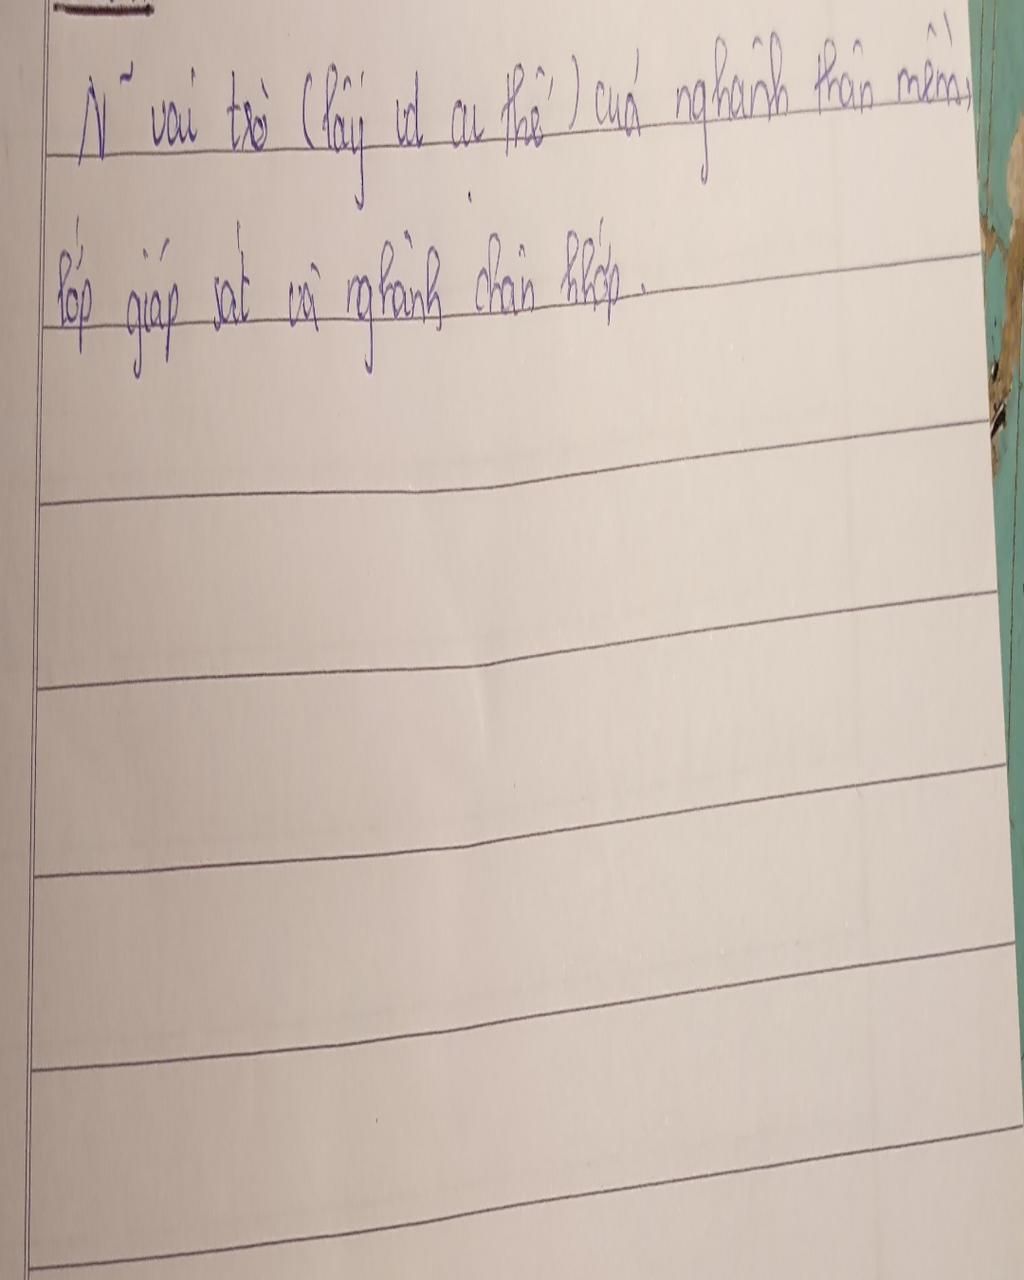 N~ vai trò (lấy vd cụ thể) của nghành thân mềm,
lớp giáp sát và nghành chân khớp.